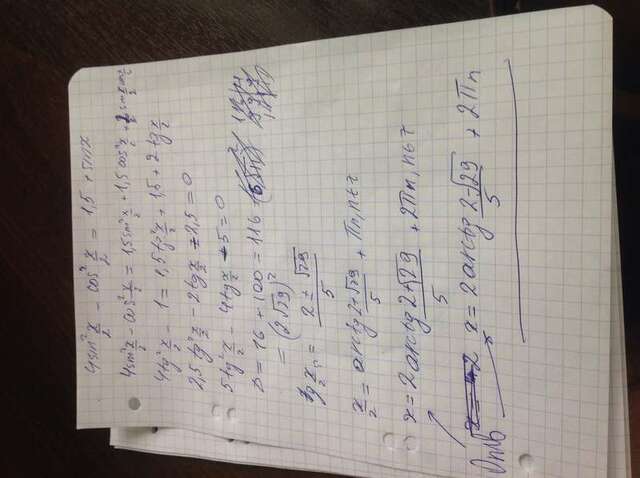 4sin² x/2 - cos² x/2 = 1,5 + sinx
4sin² x/2 - cos² x/2 = 1,5sin² x/2 + 1,5cos² x/2 + 2 sin x/2 cos x/2
4tg² x/2 - 1 = 1,5tg² x/2 + 1,5 + 2tg x/2
2,5tg² x/2 - 2tg x/2 - 2,5 = 0
5tg² x/2 - 4tg x/2 - 5 = 0
D = 16 + 100 = 116
= (2√29)²
tg x/2 = (2 ± √29)/5
x/2 = arctg (2+√29)/5 + πn, n∈Z
x = 2arctg (2+√29)/5 + 2πn, n∈Z
x = 2arctg (2-√29)/5 + 2πn